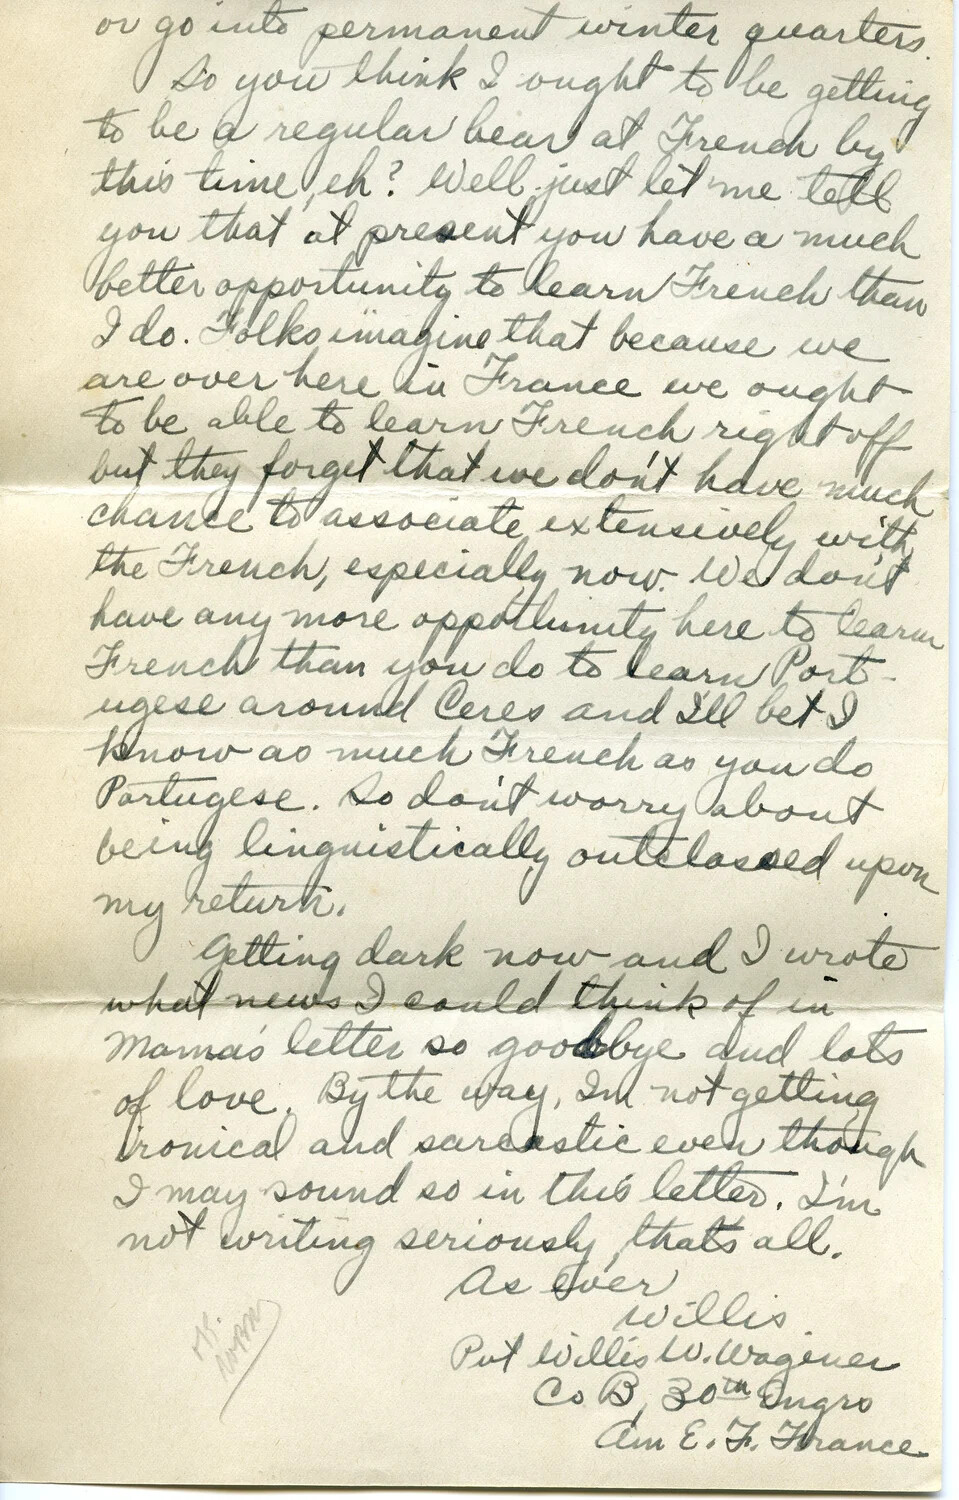 or go into permanent winter quarters.
So you think I ought to be getting
to be a regular bear at French by
this time, eh? Well just let me tell
you that at present you have a much
better opportunity to learn French than
I do. Folks imagine that because we
are over here in France we ought
to be able to learn French right off
but they forget that we don't have much
chance to associate extensively with
the French, especially now. We don't
have any more opportunity here to learn
French than you do to learn Port-
ugese around Ceres and I'll bet I
know as much French as you do
Portugese. So don't worry about
being linguistically outclassed upon
my return.
Getting dark now and I wrote
what news I could think of in
Mama's letter so goodbye and lots
of love. By the way, I'm not getting
ironical and sarcastic even though
I may sound so in this letter. I'm
not writing seriously, that's all.
As Ever
Willis
Pvt Willis W. Wagener
Co B, 30th Engrs
Am E. F. France